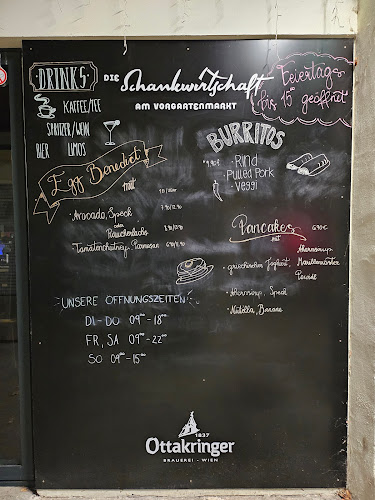 DRINKS
KAFFEE/TEE
SPRITZER/WEIN
BIER LIMOS
DIE Schankwirtschaft
AM VORGARTENMARKT
Feiertags
bis 15⁰⁰ geöffnet
Egg Benedict
mit
Avocado, Speck
oder
Räucherlachs
Tomatenchutney, Parmesan
BURRITOS
Rind
Pulled Pork
Veggi
Pancakes
mit
Ahornsirup
griechischem Joghurt,
Ahornsirup, Speck
Nutella, Banane
UNSERE ÖFFNUNGSZEITEN
DI-DO 09⁰⁰-18⁰⁰
FR, SA 09⁰⁰-22⁰⁰
SO 09⁰⁰-15⁰⁰
1837
Ottakringer
BRAUEREI - WIEN